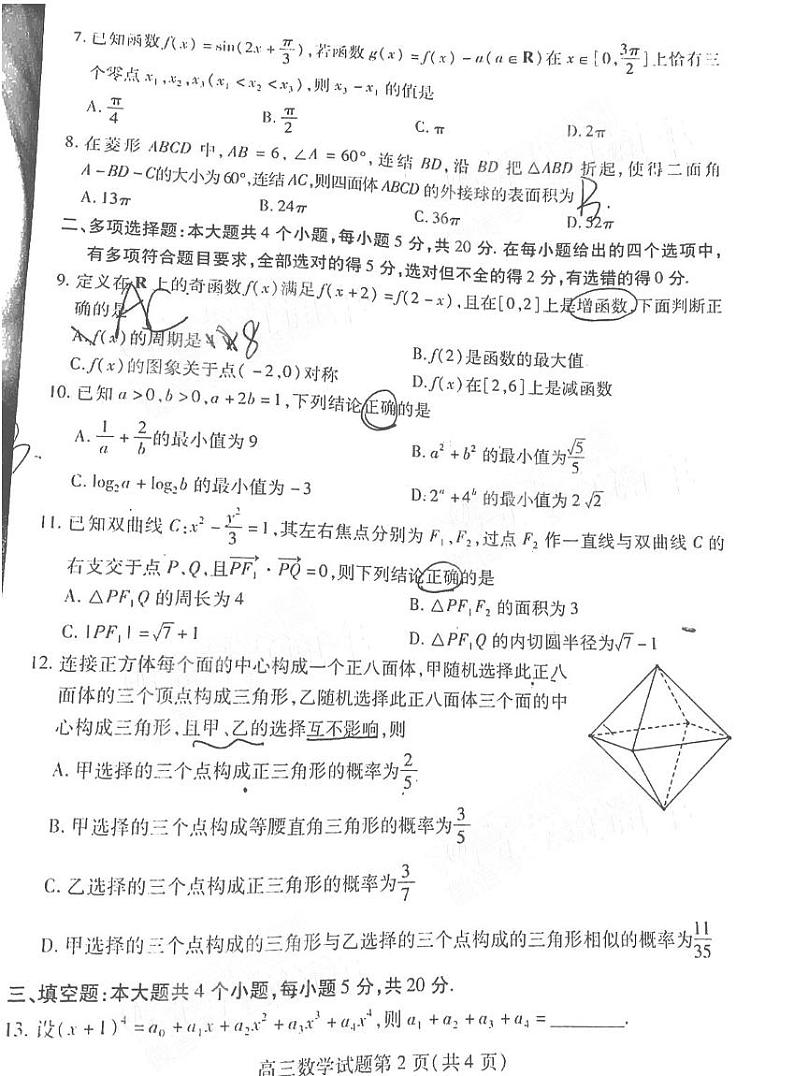 7. 已知函数f(x) = sin(2x + π/3), 若函数g(x) = f(x) - a(a∈R)在 x∈[0, 3π/2]上恰有三
个零点 x₁, x₂, x₃(x₁ < x₂ < x₃), 则 x₃ - x₁ 的值是
A. π/4 B. π/2 C. π D. 2π
8. 在菱形 ABCD 中, AB = 6, ∠A = 60°, 连结 BD, 沿 BD 把 △ABD 折起, 使得二面角
A-BD-C的大小为60°, 连结AC, 则四面体ABCD的外接球的表面积为 B .
A. 13π B. 24π C. 36π D. 52π
二、多项选择题: 本大题共 4 个小题, 每小题 5 分, 共 20 分. 在每小题给出的四个选项中,
有多项符合题目要求, 全部选对的得 5 分, 选对但不全的得 2 分, 有选错的得 0 分.
9. 定义在 R 上的奇函数 f(x) 满足 f(x+2) = f(2-x), 且在[0,2]上是增函数, 下面判断正
确的是 AC
A. f(x)的周期是 8
B. f(2)是函数的最大值
C. f(x)的图象关于点(-2,0)对称
D. f(x)在[2,6]上是减函数
10. 已知 a>0, b>0, a+2b=1, 下列结论正确的是
A. 1/a + 2/b 的最小值为 9
B. a² + b² 的最小值为 √5/5
C. log₂a + log₂b 的最小值为 -3
D. 2ᵃ + 4ᵇ 的最小值为 2√2
11. 已知双曲线 C: x² - y²/3 = 1, 其左右焦点分别为 F₁, F₂, 过点 F₂ 作一直线与双曲线 C 的
右支交于点 P、Q, 且PF₁ · PQ = 0, 则下列结论正确的是
A. △PF₁Q 的周长为 4
B. △PF₁F₂ 的面积为 3
C. |PF₁| = √7 + 1
D. △PF₁Q 的内切圆半径为√7 - 1
12. 连接正方体每个面的中心构成一个正八面体, 甲随机选择此正八
面体的三个顶点构成三角形, 乙随机选择此正八面体三个面的中
心构成三角形, 且甲、乙的选择互不影响, 则
A. 甲选择的三个点构成正三角形的概率为 2/5
B. 甲选择的三个点构成等腰直角三角形的概率为 3/5
C. 乙选择的三个点构成正三角形的概率为 3/7
D. 甲选择的三个点构成的三角形与乙选择的三个点构成的三角形相似的概率为 11/35
三、填空题: 本大题共 4 个小题, 每小题 5 分, 共 20 分.
13. 设(x+1)⁴ = a₀ + a₁x + a₂x² + a₃x³ + a₄x⁴, 则 a₁ + a₂ + a₃ + a₄ = ________.
高三数学试题第 2 页(共 4 页)